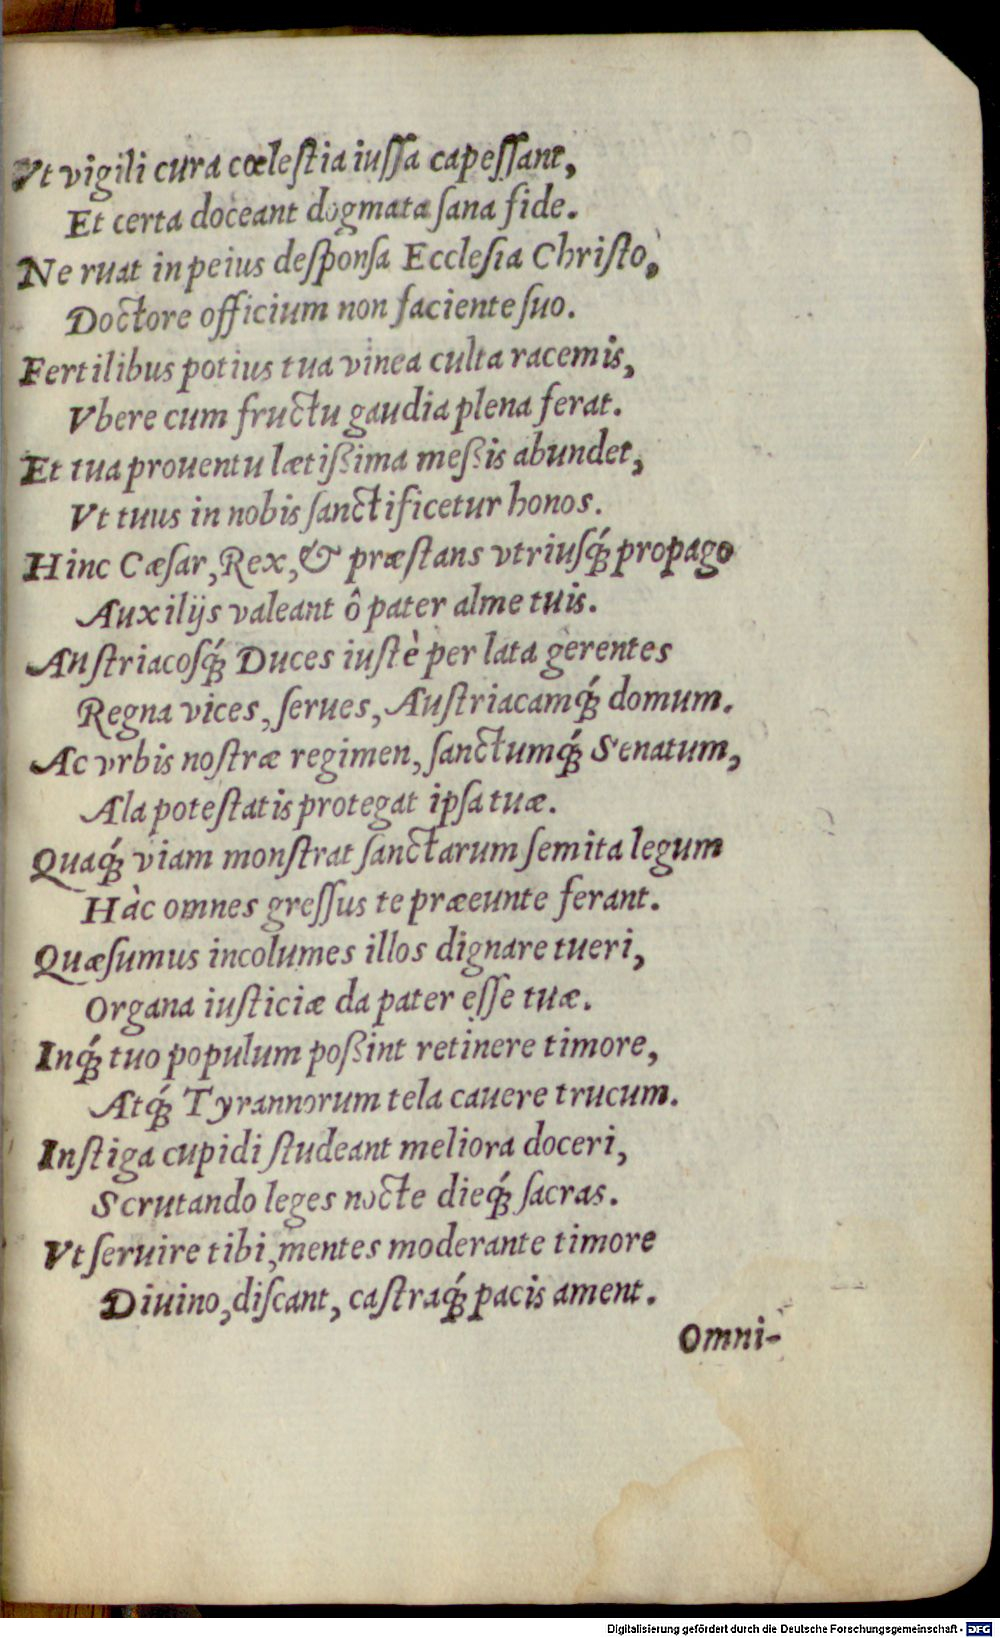 Vt vigili cura cœlestia iussa capessant,
Et certa doceant dogmata sana fide.
Ne ruat in peius desponsa Ecclesia Christo,
Doctore officium non faciente suo.
Fertilibus potius tua vinea culta racemis,
Vbere cum fructu gaudia plena ferat.
Et tua prouentu lætißima meßis abundet,
Vt tuus in nobis sanctificetur honos.
Hinc Cæsar, Rex, & præstans vtriusq́; propago
Auxilijs valeant ô pater alme tuis.
Austriacosq́; Duces iustè per lata gerentes
Regna vices, serues, Austriacamq́; domum.
Ac vrbis nostræ regimen, sanctumq́; Senatum,
Ala potestatis protegat ipsa tuæ.
Quaq́; viam monstrat sanctarum semita legum
Hàc omnes gressus te præeunte ferant.
Quæsumus incolumes illos dignare tueri,
Organa iusticiæ da pater esse tuæ.
Inq́; tuo populum poßint retinere timore,
Atq́; Tyrannorum tela cauere trucum.
Instiga cupidi studeant meliora doceri,
Scrutando leges nocte dieq́; sacras.
Vt seruire tibi, mentes moderante timore
Diuino, discant, castraq́; pacis ament.
Omni-
Digitalisierung gefördert durch die Deutsche Forschungsgemeinschaft - DFG